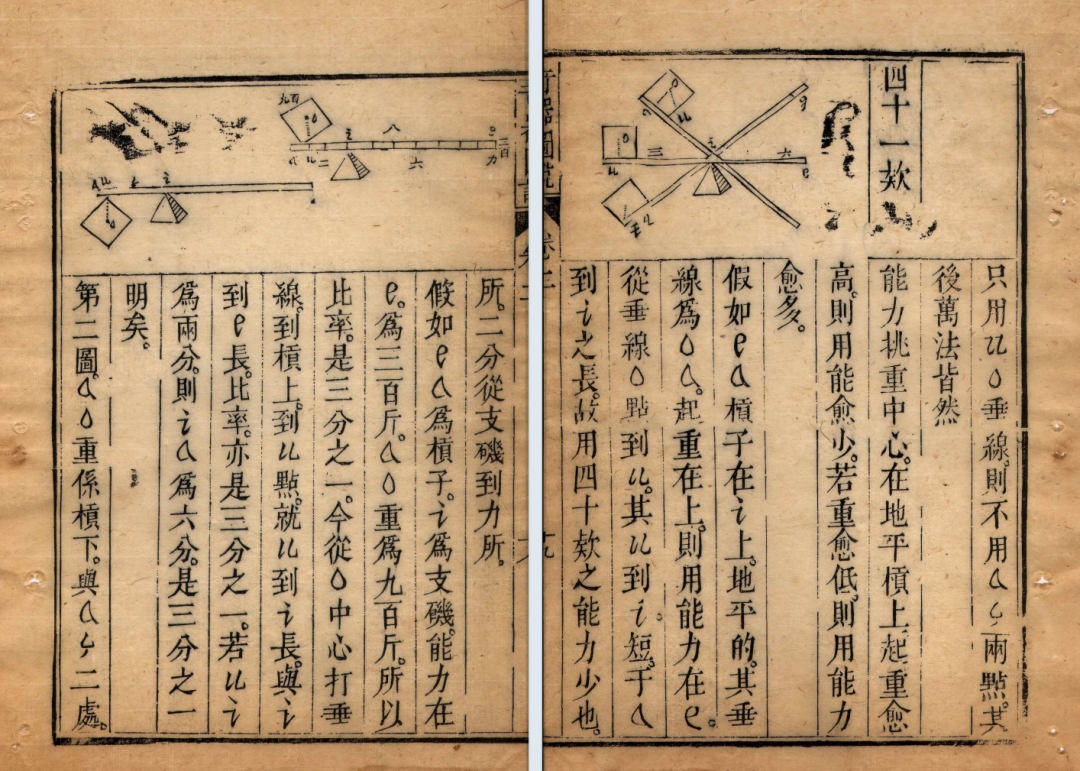 四十一欵
只用u o垂線。則不用a s兩點。其
後萬法皆然
能力挑重中心。在地平槓上起重愈
高。則用能愈少。若重愈低。則用能力
愈多。
假如e a槓子在i上。地平的。其垂
線爲o a。起重在上。則用能力在e。
從垂線o點到u。其u到i短。于a
到i之長。故用四十欵之能力少也。
卷二
所。二分從支磯到力所。
假如e a爲槓子。i爲支磯。能力在
e。爲三百斤。a o重爲九百斤。所以
比率。是三分之一。今從o中心打垂
線。到槓上。到u點。就u到i長。與i
到e長。比率。亦是三分之一。若u i
爲兩分。則i a爲六分。是三分之一
明矣。
第二圖。a o重係槓下。與a s二處。